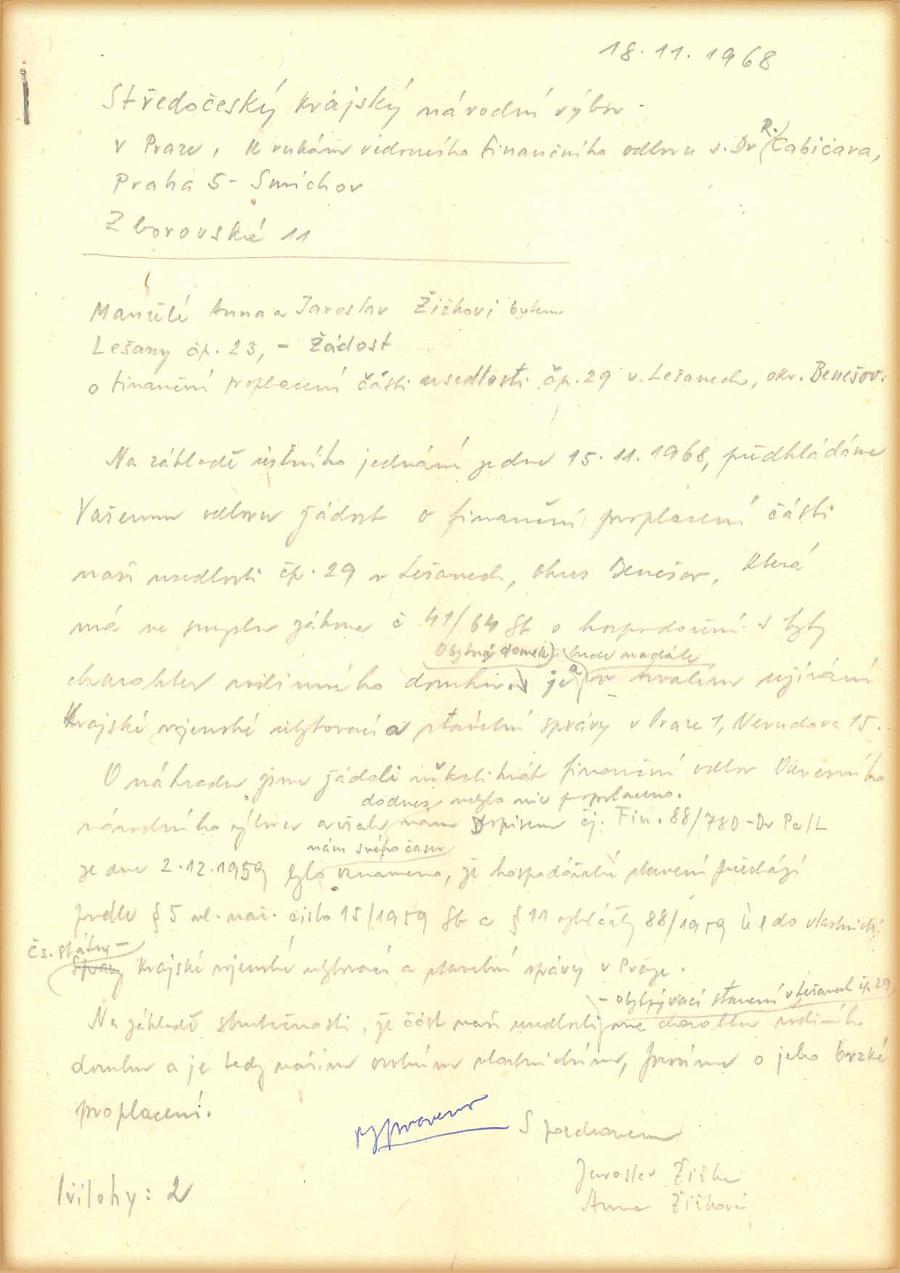 18.11.1968
Středočeský krajský národní výbor
v Praze, k rukám vedoucího finančního odboru s. Dr R. Čabičara,
Praha 5 - Smíchov
Zborovské 11
Manželé Anna a Jaroslav Žižkovi bytem
Lešany čp. 23, - Žádost
o finanční proplacení části usedlosti čp. 29 v Lešanech, okr. Benešov.
Na základě ústního jednání ze dne 15.11.1968, předkládáme
Vašemu odboru žádost o finanční proplacení části
naší usedlosti čp. 29 v Lešanech, okres Benešov, která
má ve smyslu zákona č 41/64 Sb o hospodaření s byty
Obytný domek) (bude nadále
charakter rodinného domku. je a) v trvalém užívání
Krajské vojenské ubytovací a stavební správy v Praze 1, Nerudova 15.
O náhradu jsme žádali několikrát finanční odbor Okresního
dodnes nebylo nic proplaceno.
národního výboru avšak nám Dopisem čj. Fin. 88/780-Dr Pe/L
nám svého času
ze dne 2.12.1959 bylo oznámeno, že hospodářské stavení přechází
podle § 5 vl. nař. číslo 15/1959 Sb a § 11 vyhlášky 88/1959 Ú.l do vlastnictví
čs. státu -
správy Krajské vojenské ubytovací a stavební správy v Praze.
- obývací stavení v Lešanech čp. 29
Na základě skutečnosti, že část naší usedlosti) má charakter rodinného
domku a je tedy naším osobním vlastnictvím, prosíme o jeho brzké
proplacení.
vypraveno
S pozdravem
Jaroslav Žižka
Anna Žižková
Přílohy: 2